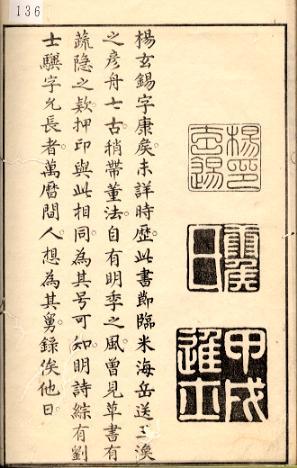 136
楊玄錫字康矦。未詳時歷。此書節臨米海岳送王渙
之彦舟七古。稍帶董法。自有明季之風。曾見草書有
蔬隐之欵。押印與此相同。為其号可知。明詩綜有劉
士驥字允長者。萬曆間人。想為其舅。録俟他日。
楊印
玄錫
康矦
甲戌
進士